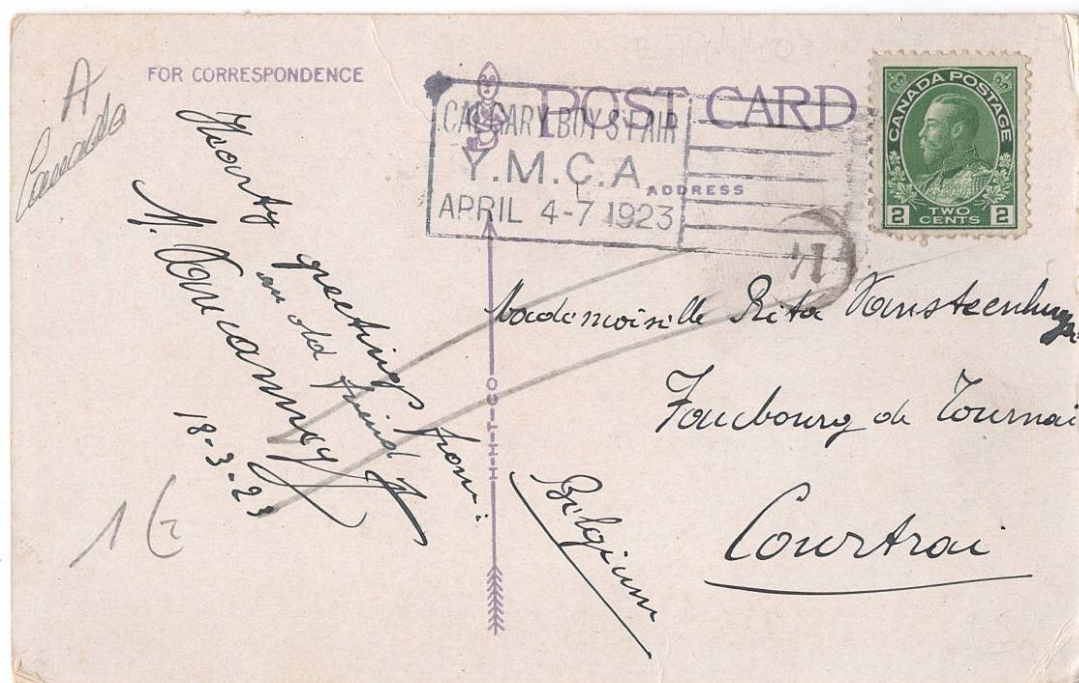 A
Canada
FOR CORRESPONDENCE
Hearty greetings from:
an old friend
18-3-23
1 €
H-H-T-CO
POST CARD
ADDRESS
CALGARY BOYS FAIR
Y.M.C.A.
APRIL 4-7 1923
CANADA POSTAGE
2 TWO CENTS 2
Mademoiselle Rita
Faubourg de Tournai
Courtrai
Belgium